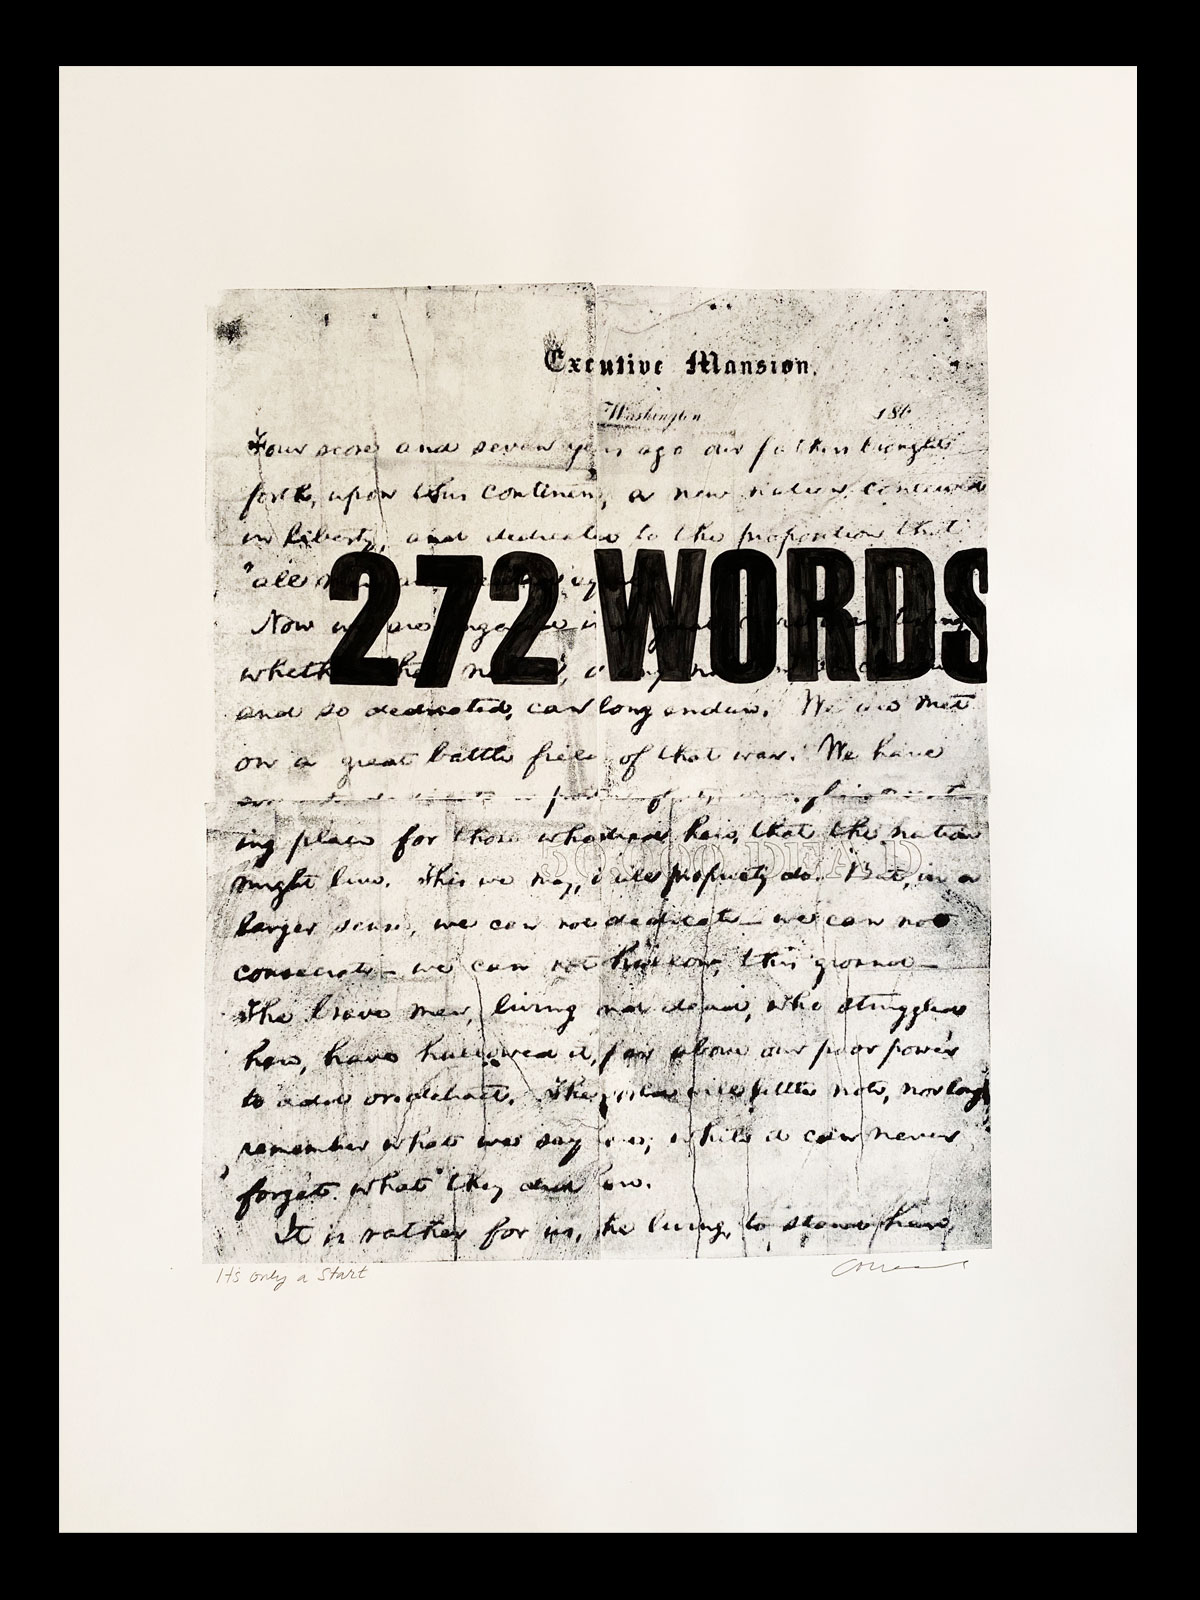 Executive Mansion,
Washington 186
Four score and seven years ago our fathers brought
forth, upon this continent, a new nation, conceived
in liberty, and dedicated to the proposition that
"all
272 WORDS
Now we are engaged in
whether that
and so dedicated, can long endure. We are met
on a great battle field of that war. We have
ing place for those who died here, that the nation
50,000 DEAD
might live. This we may, in all propriety do. But, in a
larger sense, we can not dedicate — we can not
consecrate — we can not hallow, this ground —
The brave men, living and dead, who struggled
here, have hallowed it, far above our poor power
to add or detract. The world will little note, nor long
remember what we say here; while it can never
forget what they did here.
It is rather for us, the living, to stand here,
It's only a Start